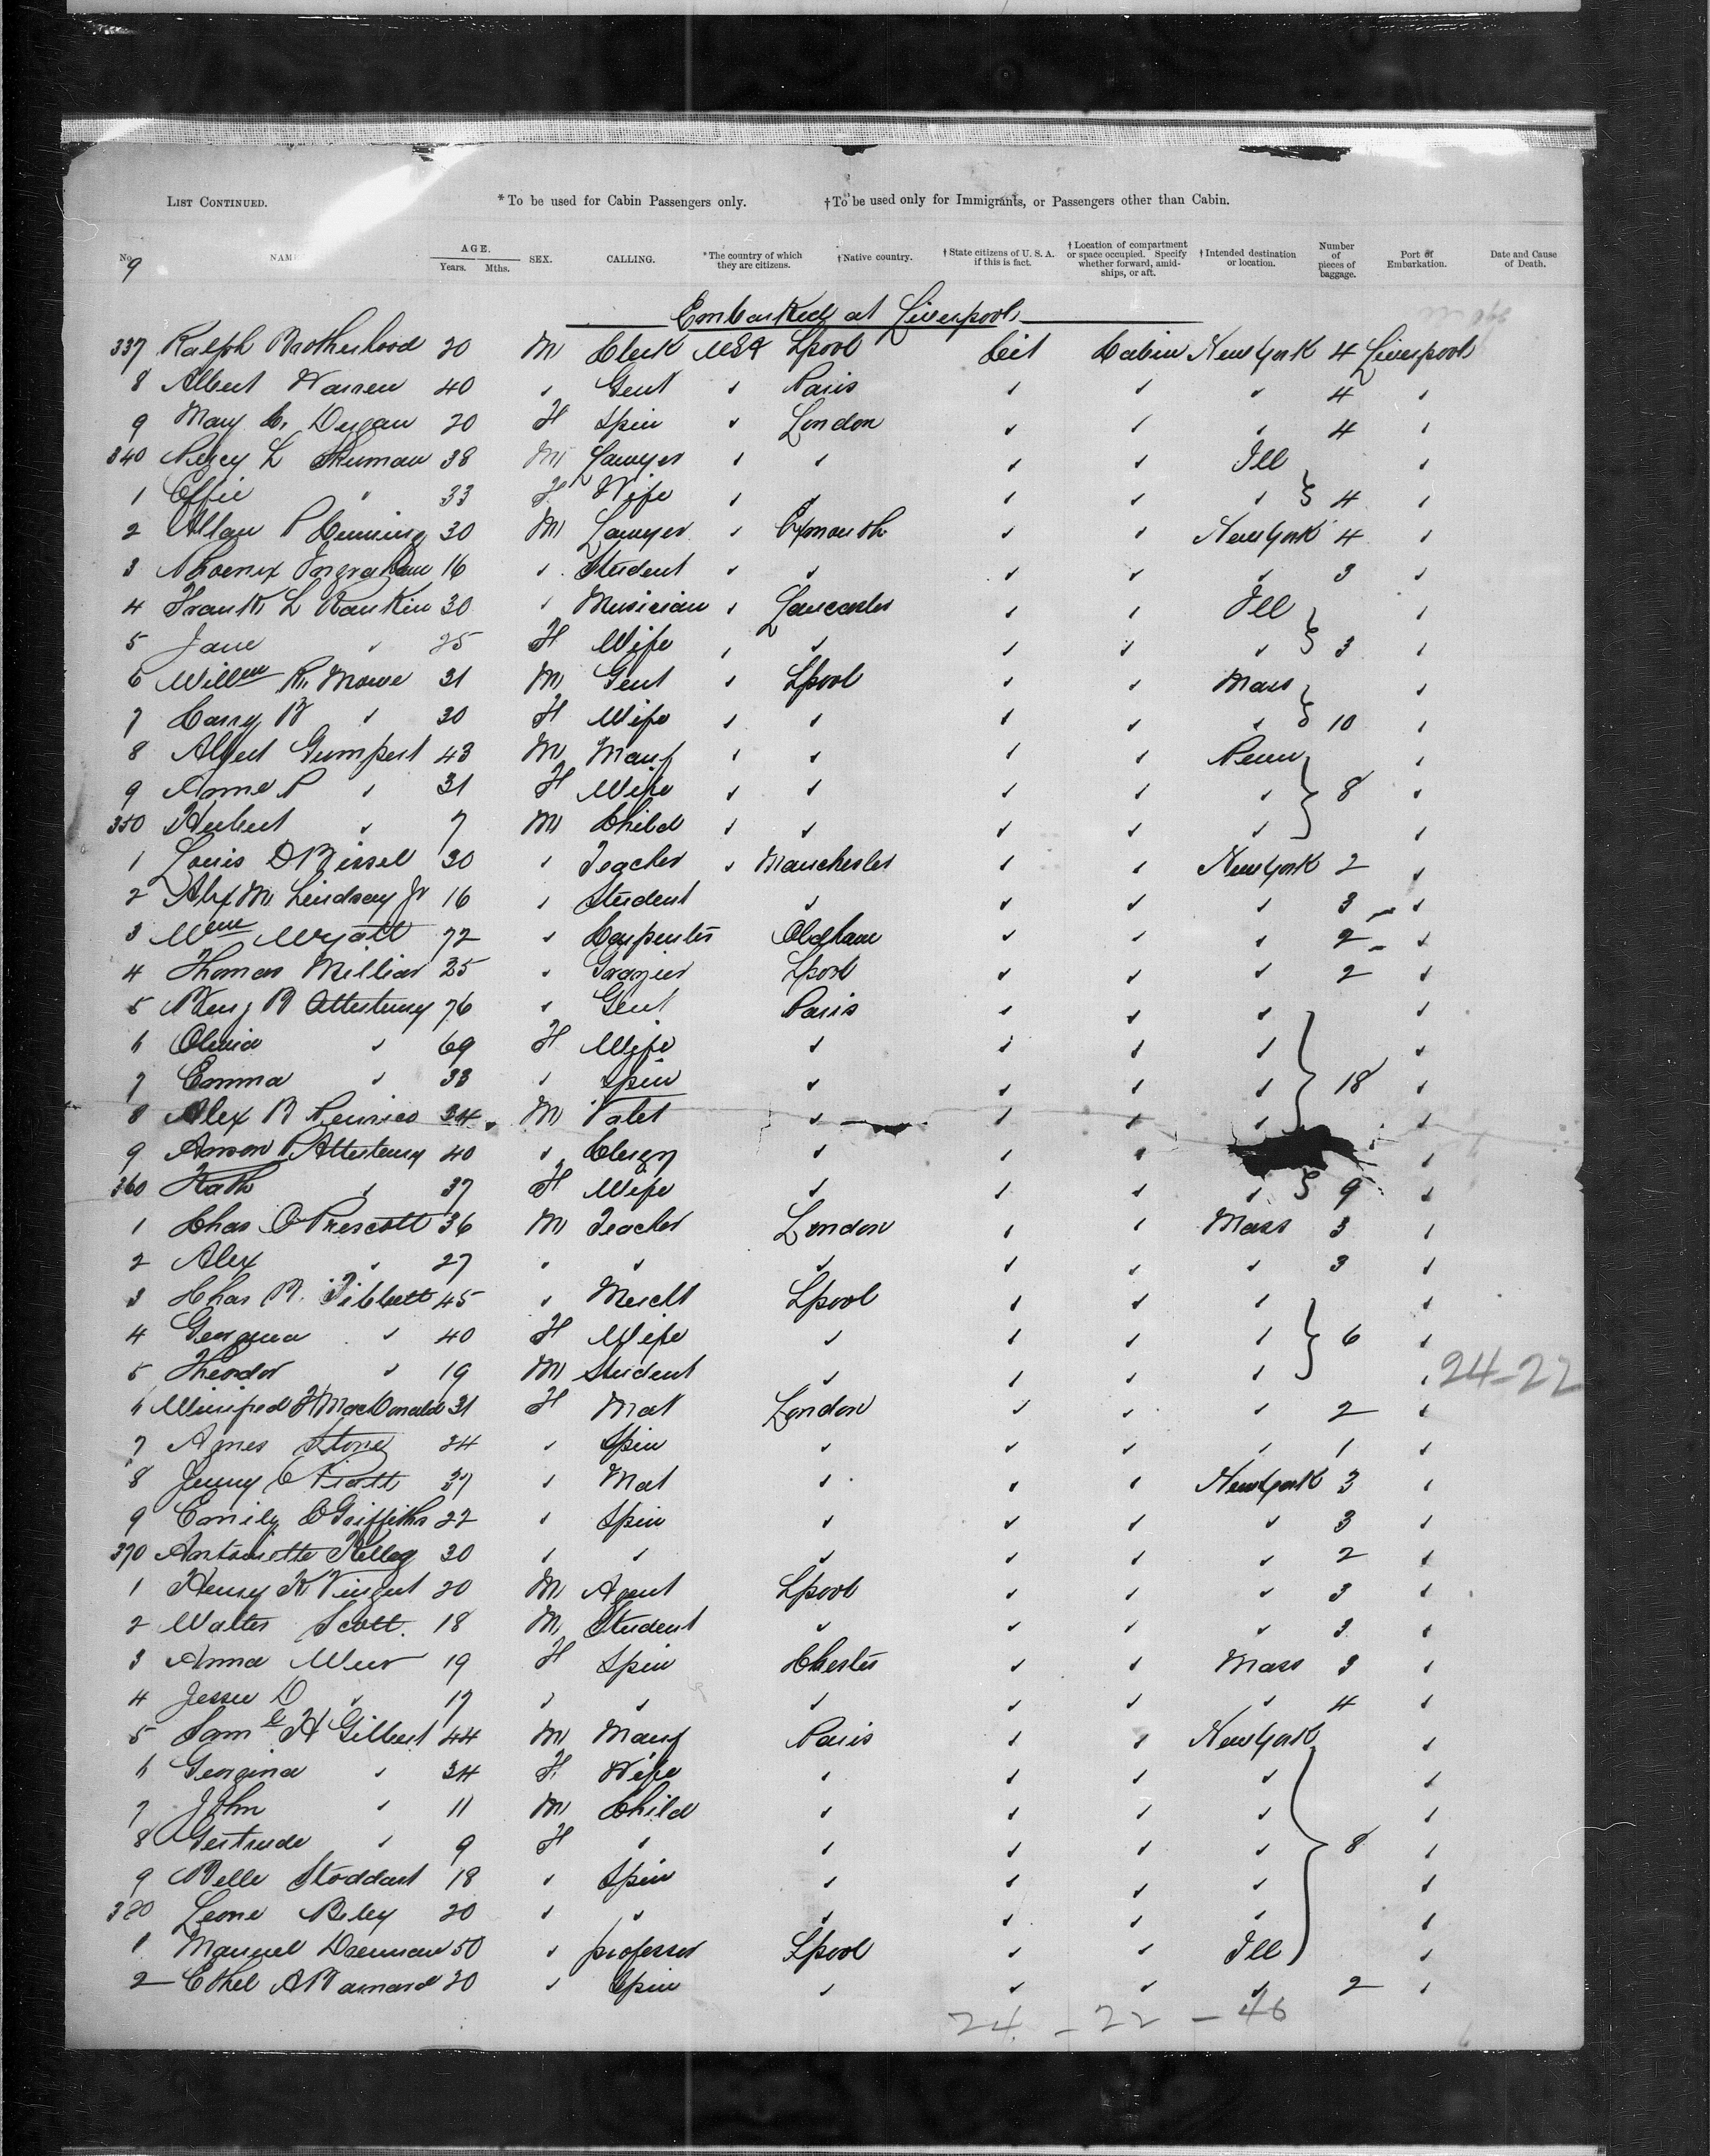 LIST CONTINUED. *To be used for Cabin Passengers only. †To be used only for Immigrants, or Passengers other than Cabin.
No. NAME AGE. Years. Mths. SEX. CALLING. *The country of which they are citizens. †Native country. †State citizens of U. S. A. if this is fact. †Location of compartment or space occupied. Specify whether forward, amidships, or aft. †Intended destination or location. Number of pieces of baggage. Port of Embarkation. Date and Cause of Death.
9
Embarked at Liverpool
337 Ralph Brotherhood 20 M Clerk USA Lpool Cit Cabin New York 4 Liverpool
8 Albert Warren 40 " Gent " Paris " " " 4 "
9 Mary C. Dugan 20 F Spin " London " " " 4 "
340 Percy L Shuman 38 M Lawyer " " " " Ill "
1 Effie " 33 F Wife " " " " " 4 "
2 Allan P 30 M Lawyer " " " New York 4 "
3 Phoenix Ingraham 16 " Student " " " " " 3 "
4 Frank L Rankin 30 " Musician " Lancaster " " Ill "
5 Jane " 25 F Wife " " " " " 3 "
6 Willm R. Mowe 31 M Gent " Lpool " " Mass "
7 Carry B " 30 F Wife " " " " " 10 "
8 Gumpert 43 M Manf " " " " Penn "
9 Anne P " 31 F Wife " " " " " 8 "
350 Herbert " 7 M Child " " " " " "
1 Louis D Bissel 30 " Teacher " Manchester " " New York 2 "
2 Alex M Lindsay Jr 16 " Student " " " " 3 "
3 Wm Wyatt 72 " Carpenter Oldham " " " 2 "
4 Thomas Millias 25 " Grazier Lpool " " " 2 "
5 Benj B Atterbury 76 " Gent Paris " " " "
6 Olivia " 69 F Wife " " " " "
7 Emma " 33 " Spin " " " " 18 "
8 Alex B 34 M Valet " " " " "
9 Anson P Atterbury 40 " Clergy " " " "
360 Kath " 37 F Wife " " " " 9 "
1 Chas O Prescott 36 M Teacher London " " Mass 3 "
2 Alex " 27 " " " " " " 3 "
3 Chas B. Tibbett 45 " Mercht Lpool " " " "
4 Georgina " 40 F Wife " " " " 6 "
5 Theodor " 19 M Student " " " " " 24-22
6 Winifred F MacDonald 31 F Mat London " " " 2 "
7 Agnes Stone 24 " Spin " " " " 1 "
8 Jenny O Piatt 37 " Mat " " " New York 3 "
9 Emily O Griffiths 22 " Spin " " " " 3 "
370 Antoinette Kellog 30 " " " " " " 2 "
1 Henry K Vingut 20 M Agent Lpool " " " 3 "
2 Walter Scott. 18 M Student " " " " 3 "
3 Anna Weir 19 F Spin Chester " " Mass 3 "
4 Jessie D " 17 " " " " " " 4 "
5 Saml H Gilbert 44 M Manf Paris " " New York "
6 Georgina " 34 F Wife " " " " "
7 John " 11 M Child " " " " "
8 Gertrude " 9 F " " " " " 8 "
9 Belle Stoddart 18 " Spin " " " " "
380 Leone Beley 20 " " " " " " "
1 Manuel Drennan 50 " professor Lpool " " Ill "
2 Ethel A Barnard 20 " Spin " " " " 2 "
24 - 22 - 46